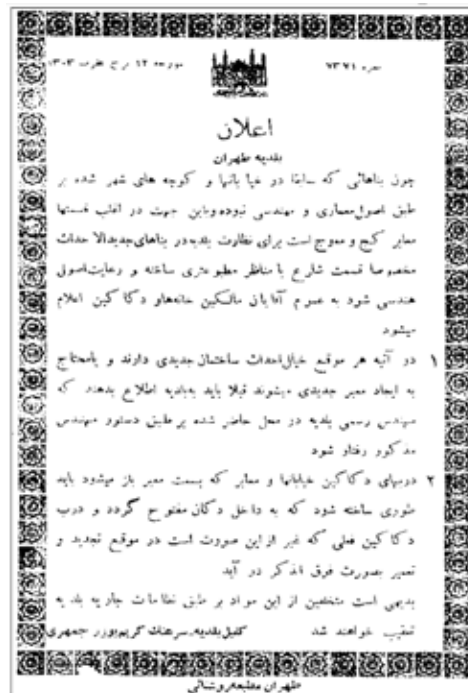 نمره ۷۳۷۱ مورخه ۱۲ برج عقرب ۱۳۰۳
اعلان
بلدیه طهران
چون بناهائی که سابقا در خیا بانها و کوچه های شهر شده بر
طبق اصول معماری و مهندسی نبوده و باین جهت در اغلب قسمتها
معابر کج و معوج است برای نظارت بلدیه در بناهای جدیدالاحداث
مخصوصا قسمت شارع با مناظر مطبوعتری ساخته و رعایت اصول
هندسی شود به عموم آقایان مالکین خانه ها و دکاکین اعلام
میشود
۱ در آتیه هر موقع خیال احداث ساختمان جدیدی دارند و یا محتاج
به ایجاد معبر جدیدی میشوند قبلا باید به بلدیه اطلاع بدهند که
مهندس رسمی بلدیه در محل حاضر شده بر طبق دستور مهندس
مذکور رفتار شود
۲ دربهای دکاکین خیابانها و معابر که بسمت معبر باز میشود باید
طوری ساخته شود که به داخل دکان مفتوح گردد و درب
دکاکین فعلی که غیر از این صورت است در موقع تجدید و
تعمیر بصورت فوق الذکر در آید
بدیهی است متخلفین از این مواد بر طبق نظامات جاریه بلدیه
تعقیب خواهند شد کفیل بلدیه، سرهنگ کریم بوزرجمهری
طهران مطبعه روشنائی